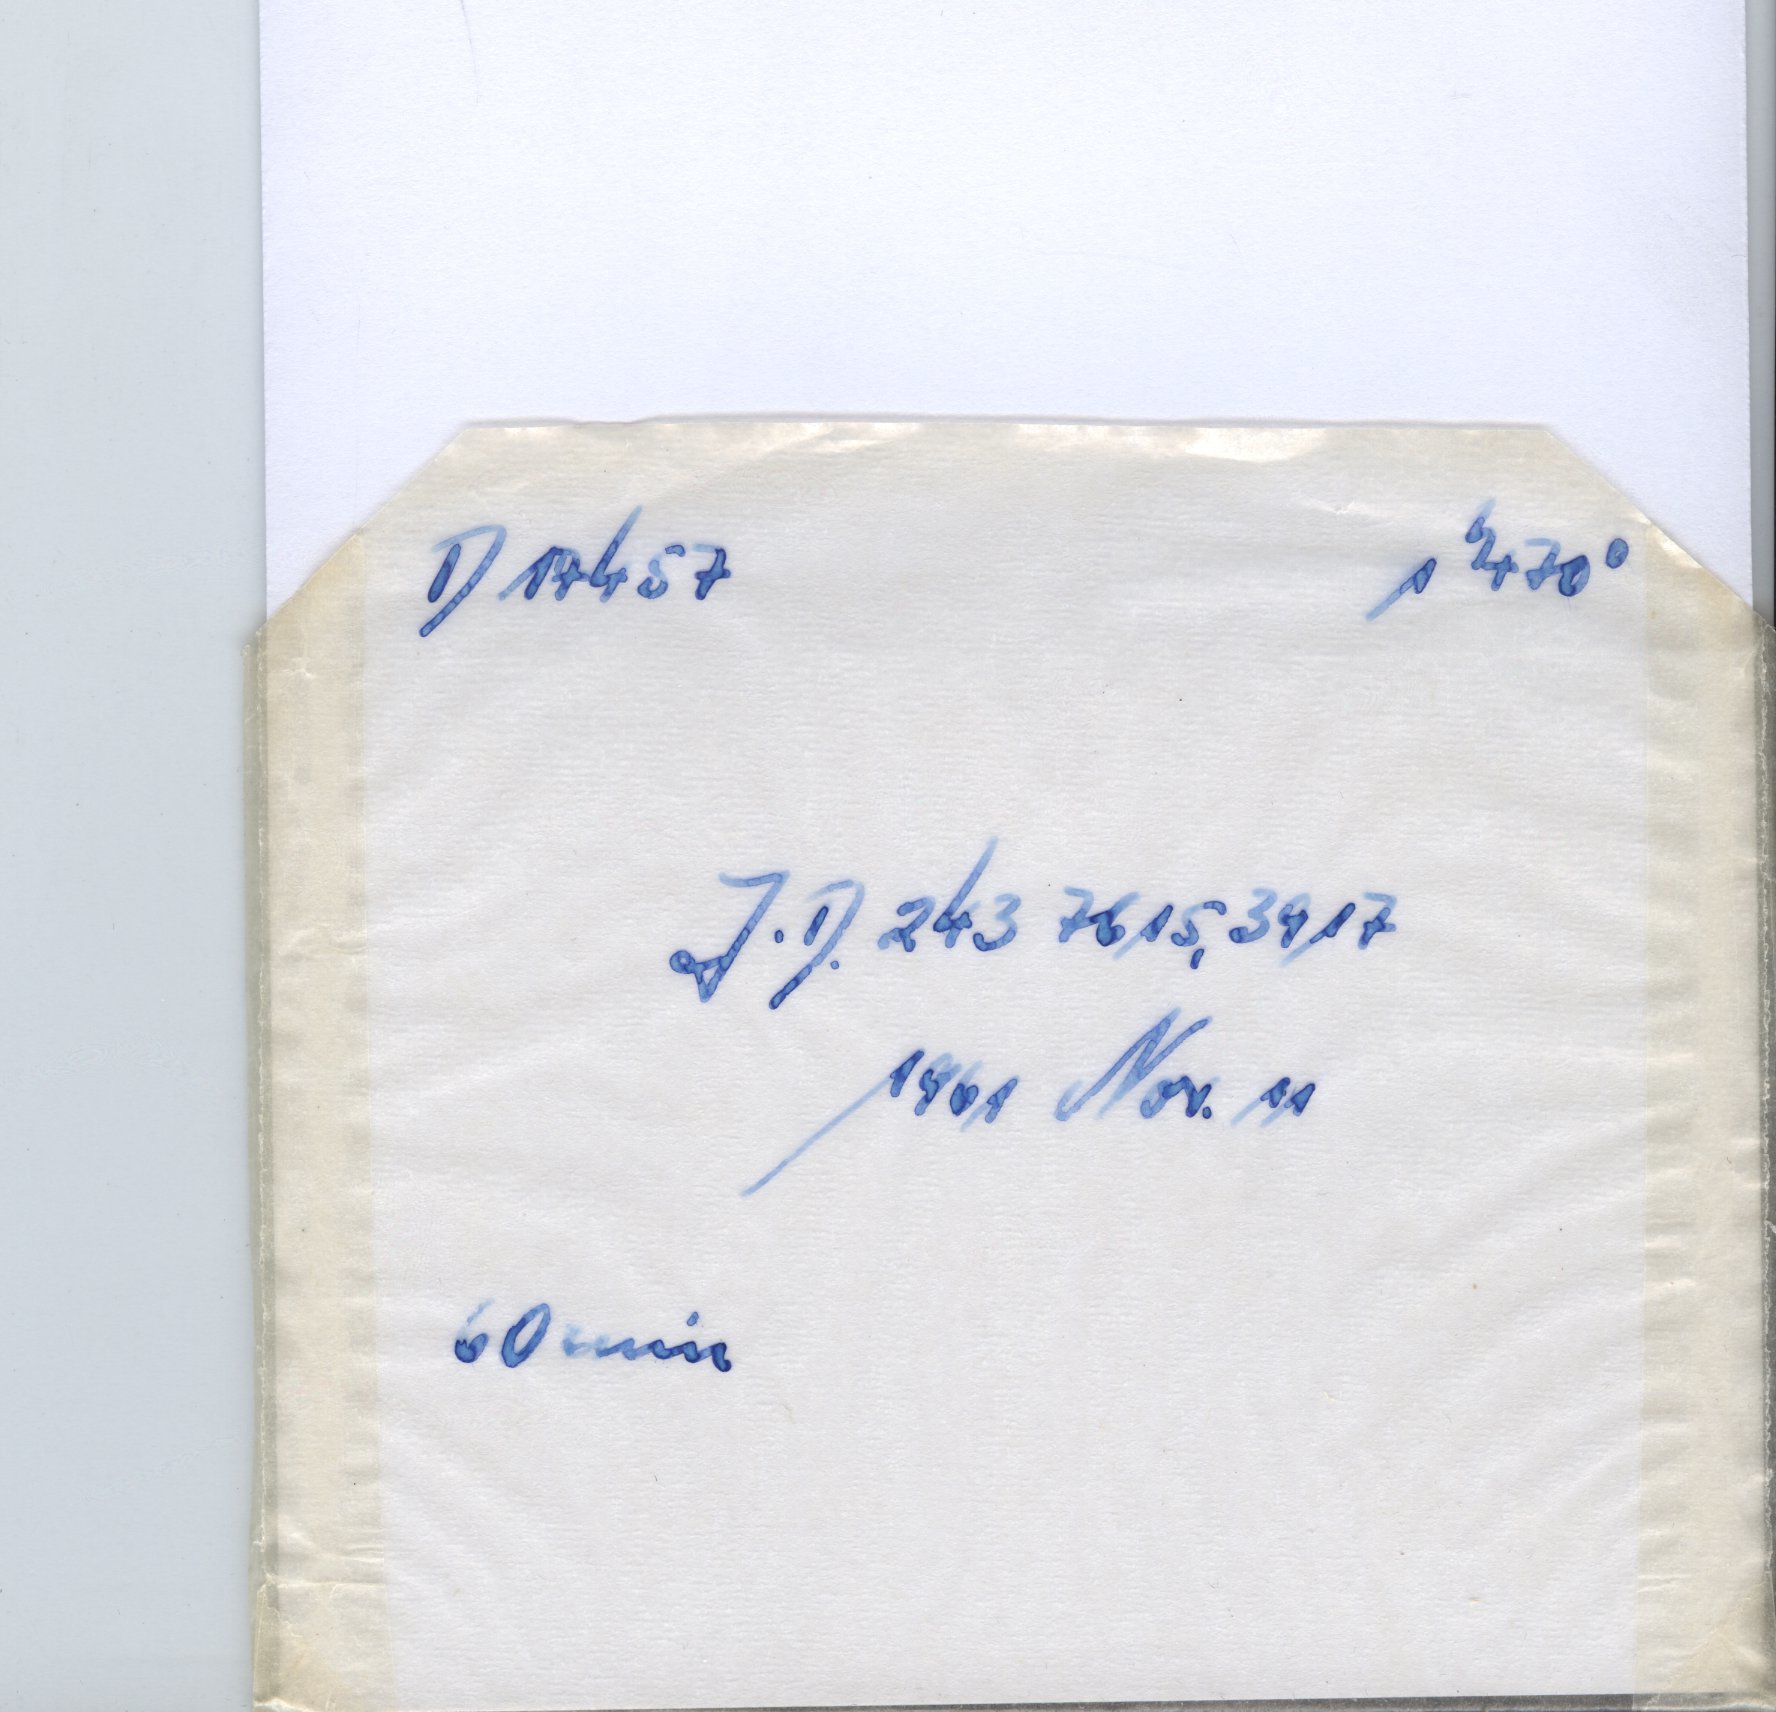 D 17457 1ʰ+70°
J.D. 243 7615,3917
1961 Nov. 11
60 min